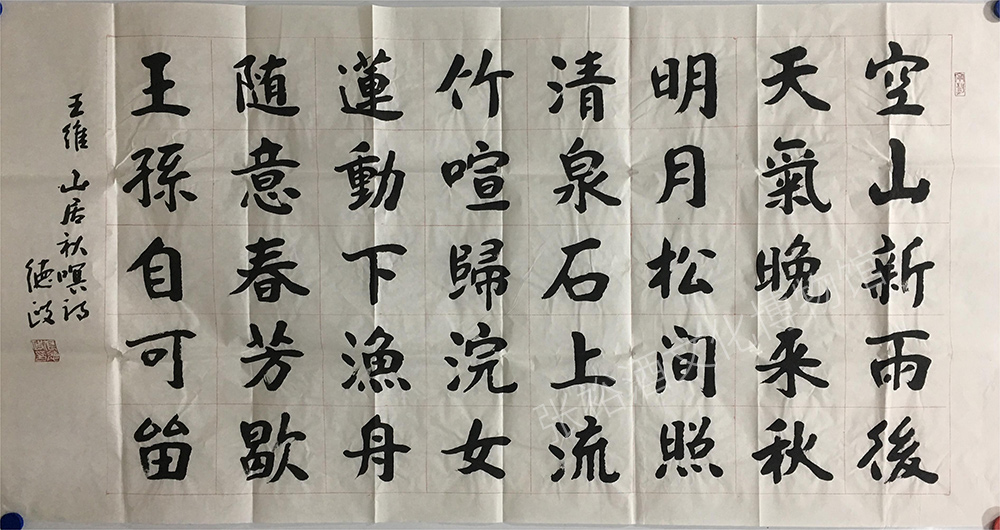 空山新雨後
天氣晚来秋
明月松间照
清泉石上流
竹喧歸浣女
蓮動下漁舟
随意春芳歇
王孫自可畱
王維 山居秋暝詩
德政
张裕酒文化博物馆